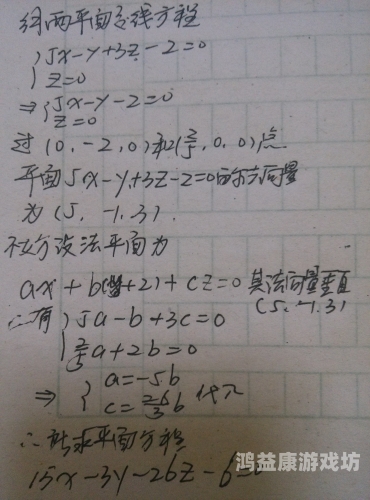 得两平面交线方程
{5x-y+3z-2=0
{z=0
⇒{5x-y-2=0
z=0
过(0,-2,0)和(2/5,0,0)点
平面5x-y+3z-2=0的法向量
为(5,-1,3).
不妨设法平面为
ax+b(y+2)+cz=0 其法向量垂直
(5,-1,3)
∴有{5a-b+3c=0
{2/5a+2b=0
⇒{a=-5b
c=26/3b 代入
∴所求平面方程
15x-3y-26z-6=0
鸿益康游戏坊